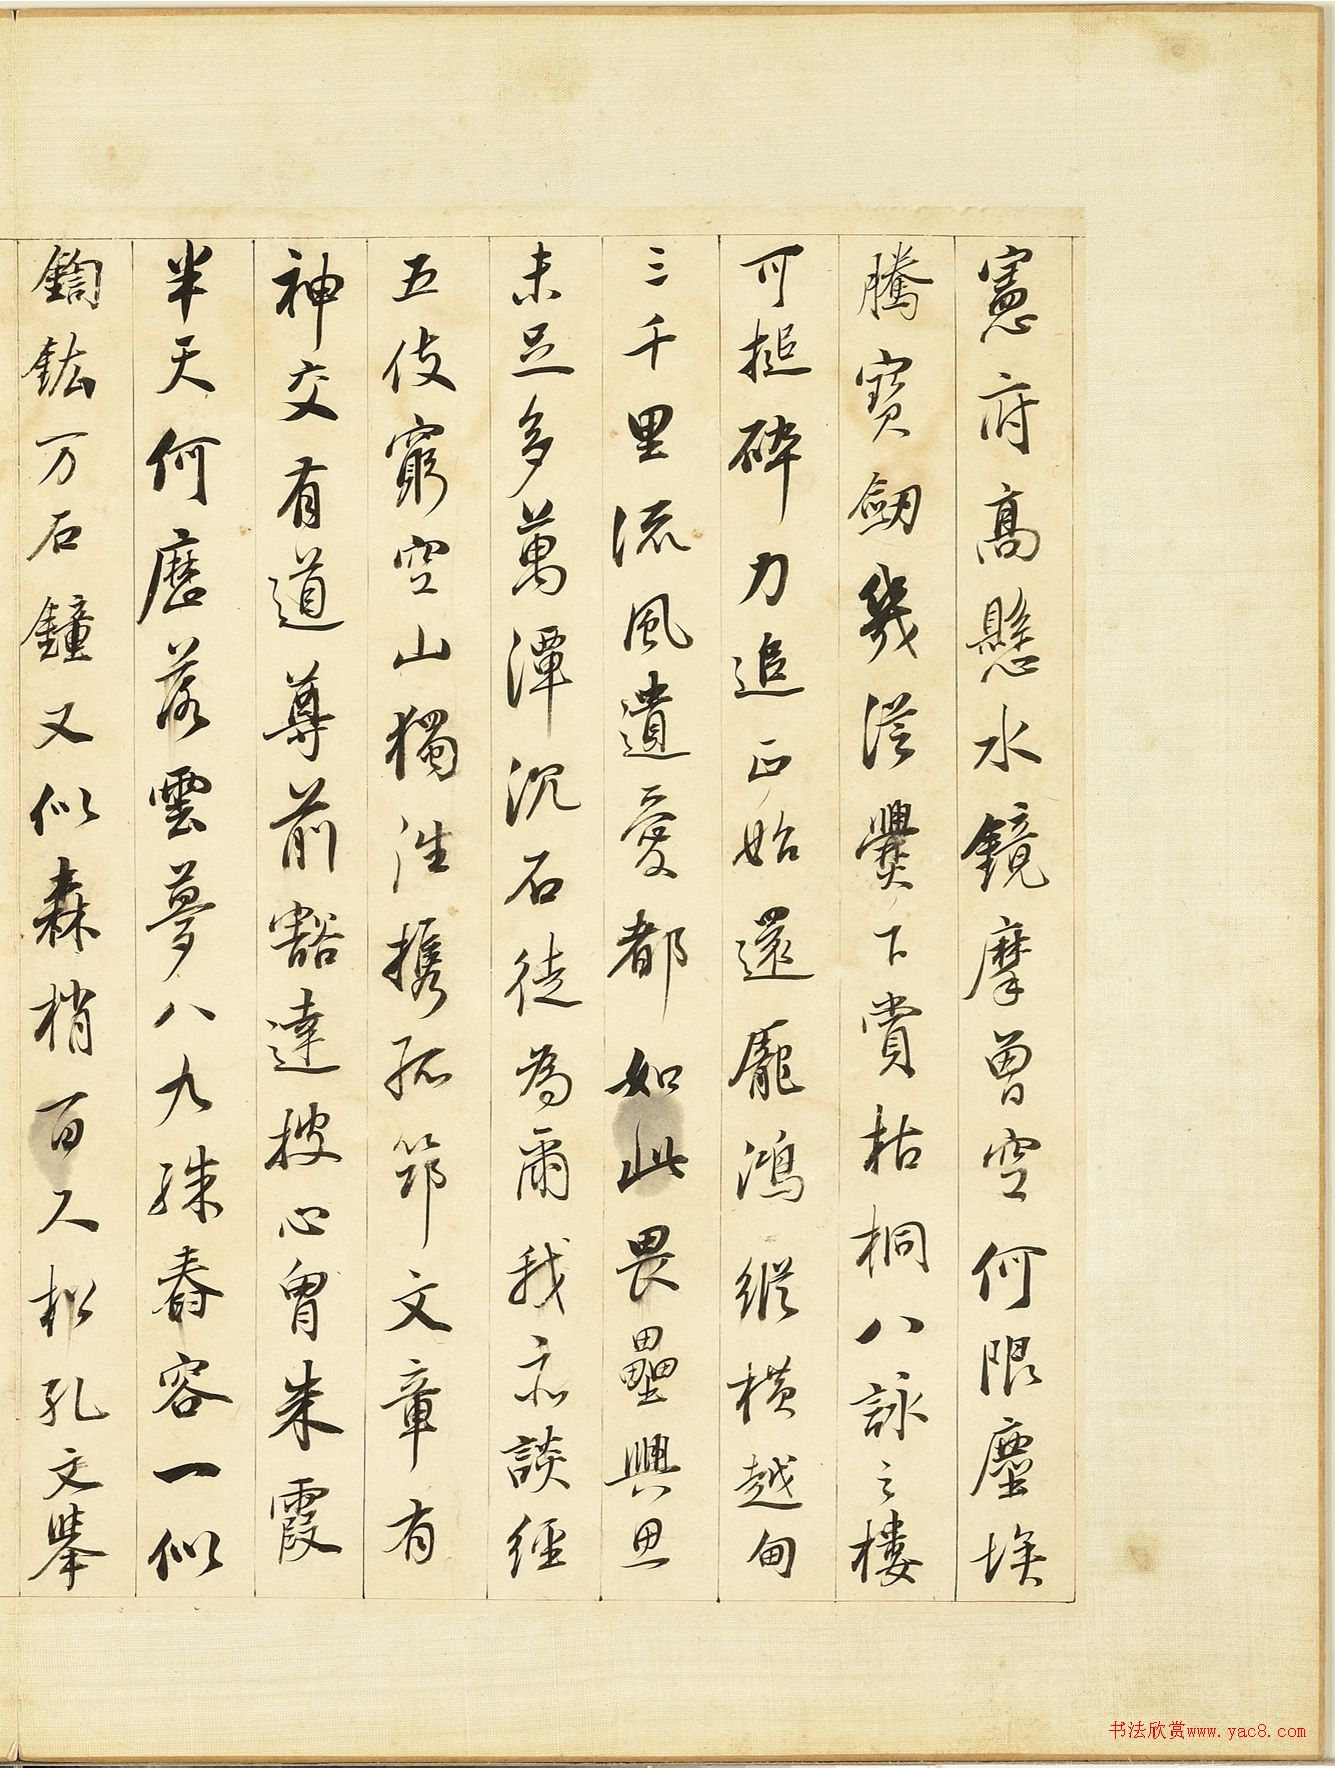 憲府高懸水鏡摩曾空何限塵埃
騰寶劔幾從爨下賞枯桐八詠之樓
可搥碎力追正始還龐鴻縱橫越甸
三千里流風遺愛都如此畏壘興思
未足多萬潭沉石徒為爾我亦談經
五伎窮空山獨往携孤筇文章有
神交有道尊前豁達披心胷朱霞
半天何歷落雲夢八九殊舂容一似
鍧鈜万石鐘又似森梢百尺松孔文舉
书法欣赏www.yac8.com